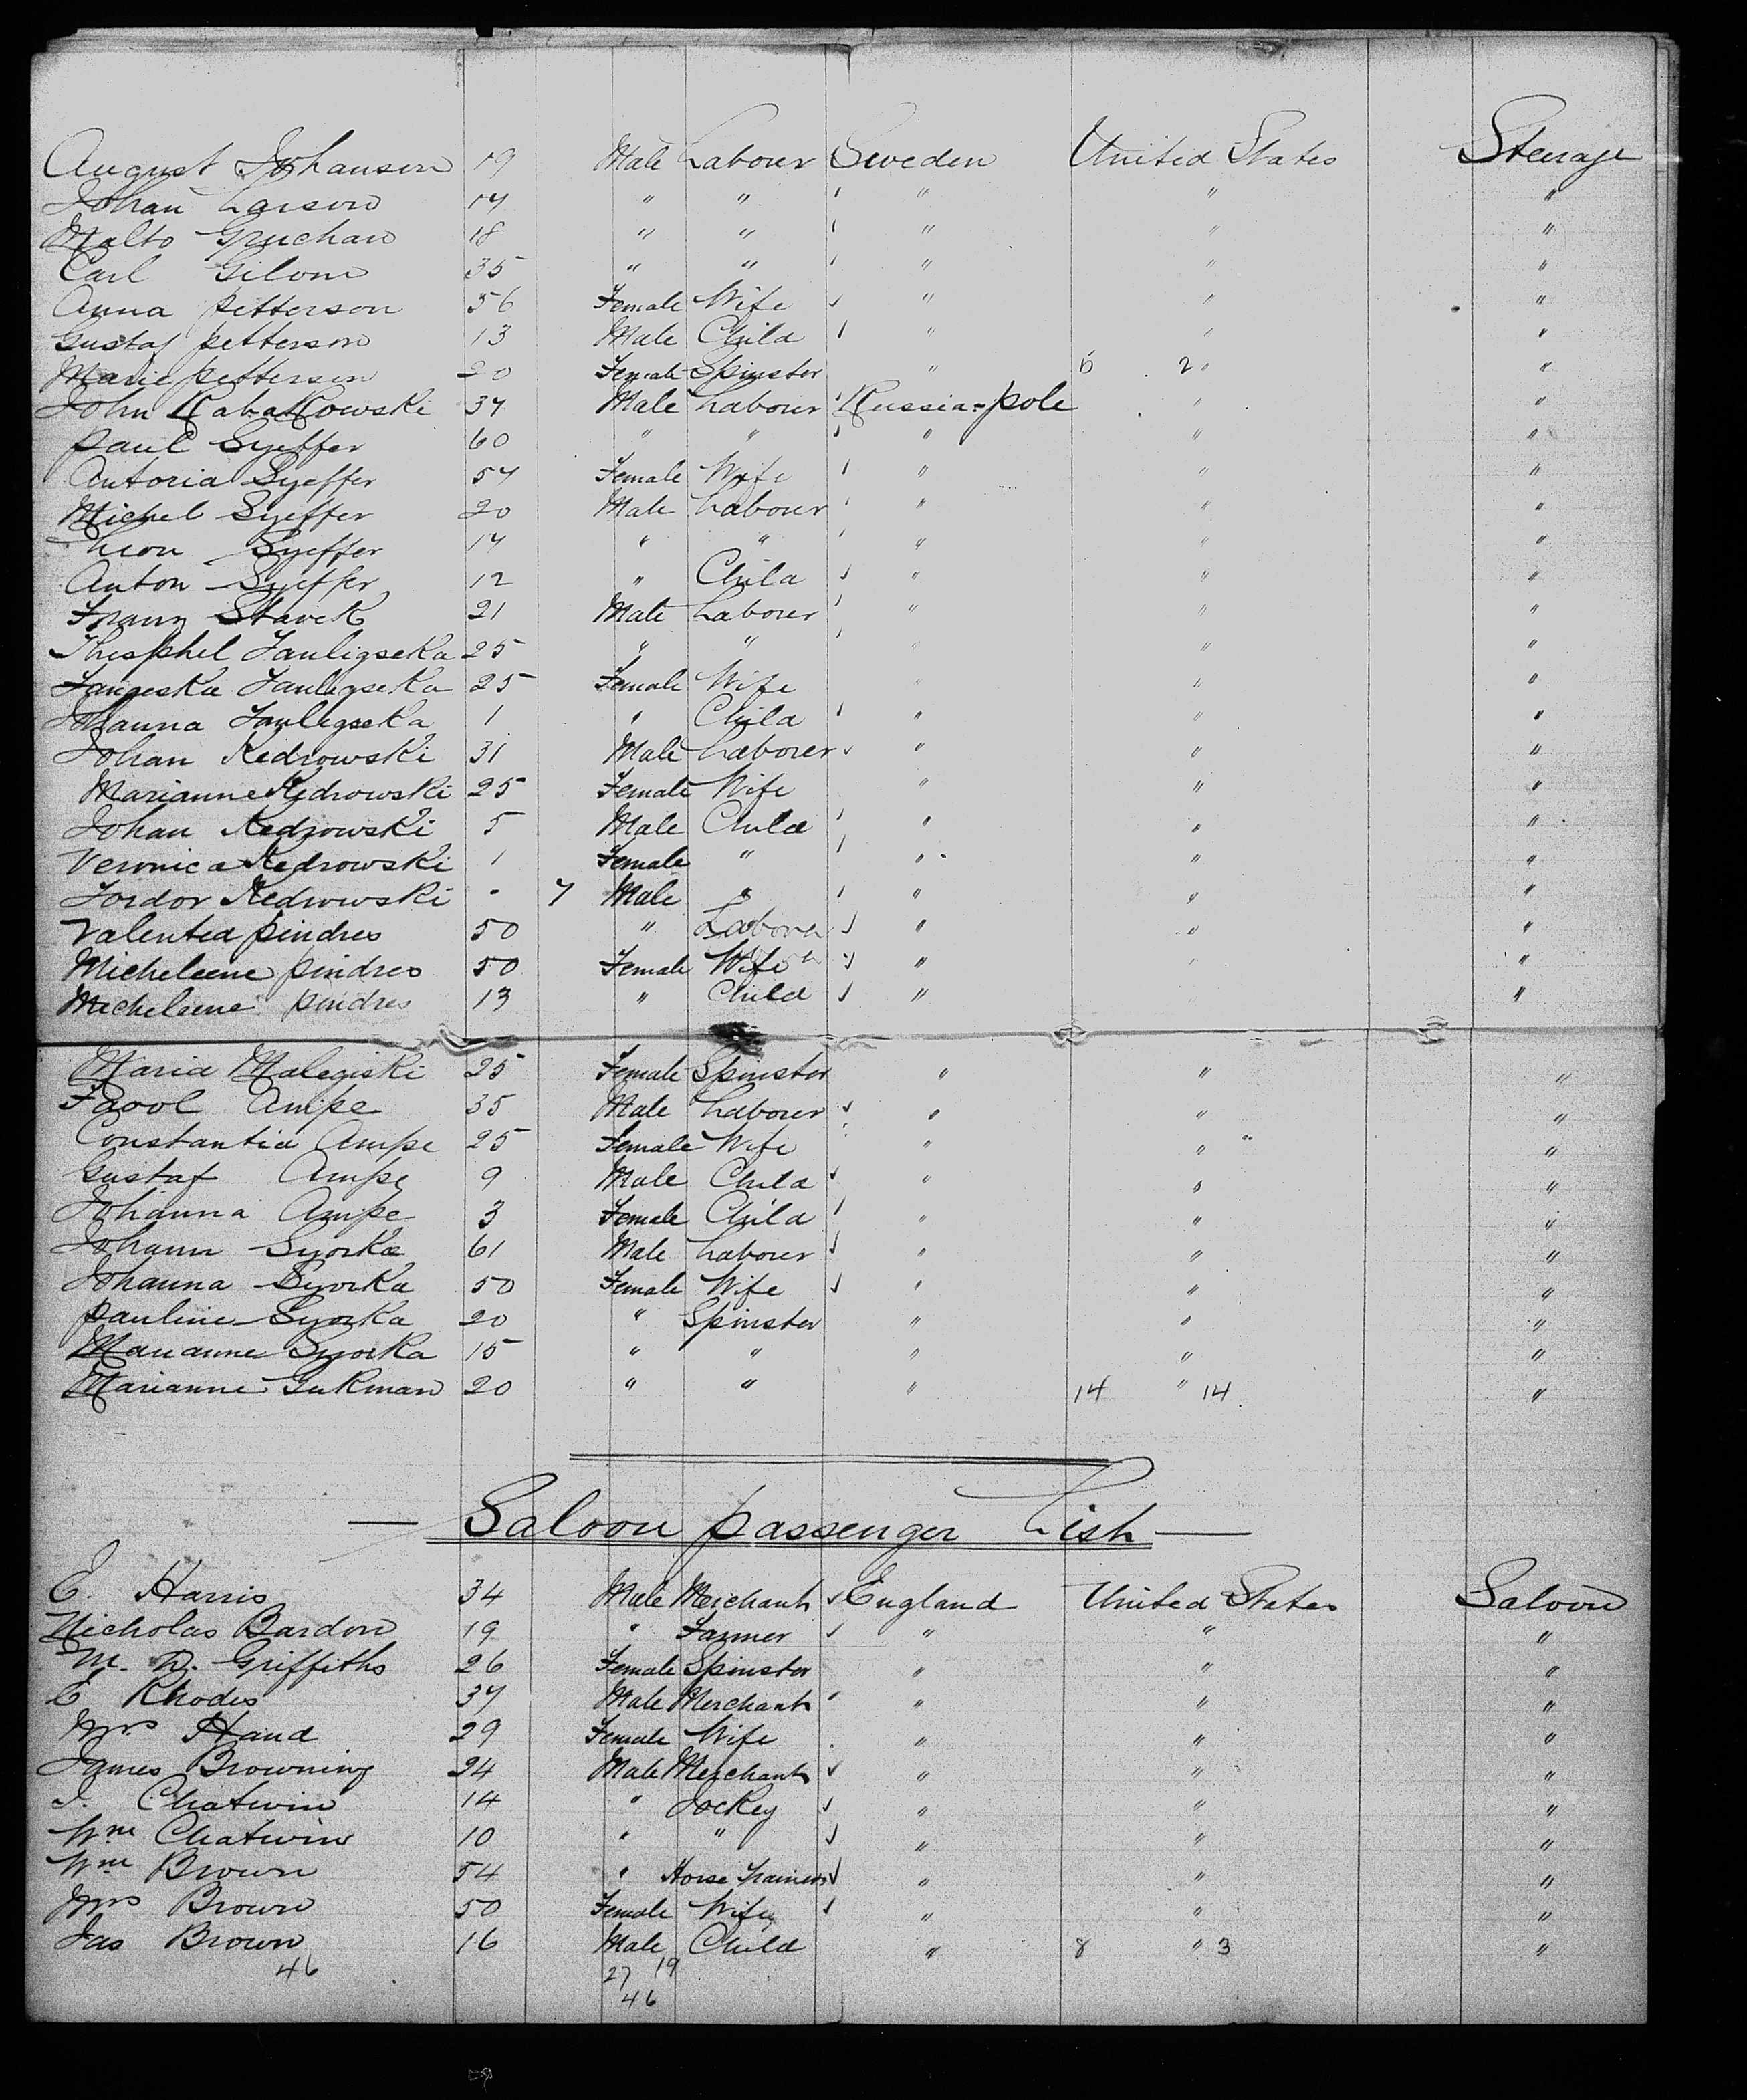 August Johanson 19 Male Labourer Sweden United States Steerage
Johan Larson 17 " " " " "
Malto Gruchan 18 " " " " "
Carl Gilom 35 " " " " "
Anna petterson 56 Female Wife " " "
Gustaf petterson 13 Male Child " " "
Marie petterson 20 Female Spinster " 5 2 " "
John Kabalkowski 37 Male Labourer Russia-pole " "
paul Syeffer 60 " " " " "
Antoria Syeffer 57 Female Wife " " "
Michel Syeffer 20 Male Labourer " " "
Leon Syeffer 17 " " " " "
Anton Syeffer 12 " Child " " "
Franz Slavek 21 Male Laborer " " "
Janligseka 25 " " " " "
Janligseka 25 Female Wife " " "
Johanna Janligseka 1 " Child " " "
Johan Kedrowski 31 Male Laborer " " "
Marianne Kedrowski 25 Female Wife " " "
Johan Kedrowski 5 Male Child " " "
Veronica Kedrowski 1 Female " " " "
Jordor Kedrowski - 7 Male " " " "
Valentea pindres 50 " Laborer " " "
Micheleene pindres 50 Female Wife " " "
Micheleene pindres 13 " Child " "
Maria Malegiski 25 Female Spinster " " "
Favol Ampe 35 Male Laborer " " "
Constantia Ampe 25 Female Wife " " "
Gustaf Ampe 9 Male Child " " "
Johanna Ampe 3 Female Child " " "
Johann Syorka 61 Male Labourer " " "
Johanna Syorka 50 Female Wife " " "
pauline Syorka 20 " Spinster " " "
Marianne Syorka 15 " " " " "
Marianne Gukman 20 " " " 14 " 14 "
Saloon passenger List
E. Harris 34 Male Merchant England United States Saloon
Nicholas Bardon 19 " Farmer " " "
M. D. Griffiths 26 Female Spinster " " "
C Rhodes 37 Male Merchant " " "
Mrs Hand 29 Female Wife " " "
James Browning 24 Male Merchant " " "
J. Chatwin 14 " Jockey " " "
Wm Chatwin 10 " " " " "
Wm Brown 54 " Horse trainer " " "
Mrs Brown 50 Female Wife " " "
Jas Brown 16 Male Child " 8 " 3 "
46 27 19
46